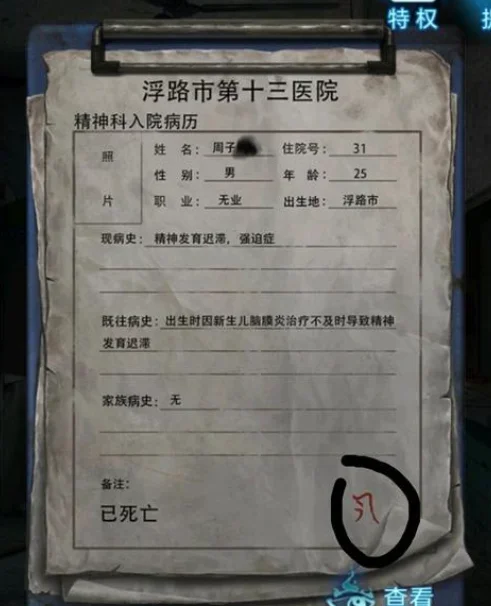 特权
浮路市第十三医院
精神科入院病历
照
片
姓 名：周子 住院号：31
性 别：男 年 龄：25
职 业：无业 出生地：浮路市
现病史：精神发育迟滞，强迫症
既往病史：出生时因新生儿脑膜炎治疗不及时导致精神
发育迟滞
家族病史：无
备注：
已死亡
查看